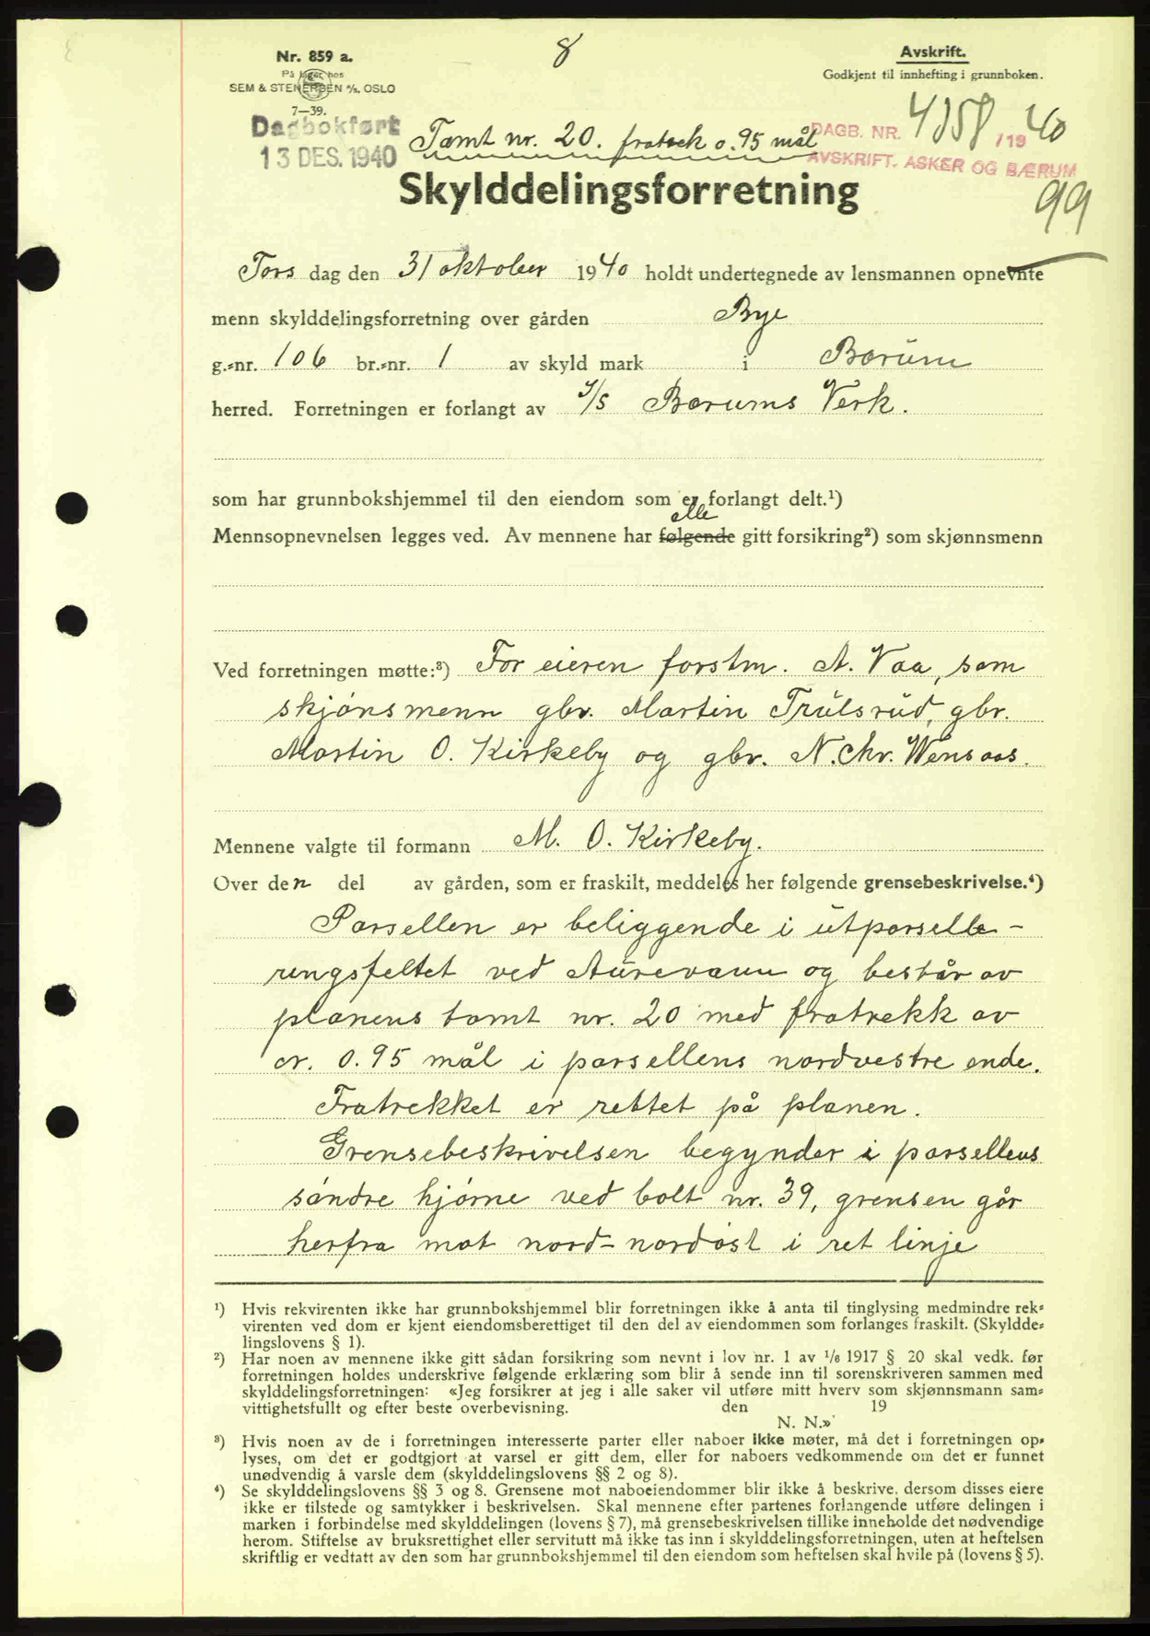 Nr. 859 a.
På lager hos
SEM & STENERSEN A/S. OSLO
7—39.
8
Avskrift.
Godkjent til innhefting i grunnboken.
Dagbokført
13 DES. 1940
Tomt nr. 20. fratrekk 0.95 mål
DAGB. NR. 4358 /19 40
AVSKRIFT. ASKER OG BÆRUM
99
Skylddelingsforretning
Tors dag den 31 oktober 1940 holdt undertegnede av lensmannen opnevnte
menn skylddelingsforretning over gården Bye
g.-nr. 106 br.-nr. 1 av skyld mark i Bærum
herred. Forretningen er forlangt av I/S Bærums Verk.
som har grunnbokshjemmel til den eiendom som er forlangt delt.¹)
alle
Mennsopnevnelsen legges ved. Av mennene har følgende gitt forsikring²) som skjønnsmenn
Ved forretningen møtte:³) For eieren forstm. A. Vaa, som
skjønsmenn gbr. Martin Trulsrud, gbr.
Martin O. Kirkeby og gbr. N. Chr. Wensaas.
Mennene valgte til formann M. O. Kirkeby.
Over den del av gården, som er fraskilt, meddeles her følgende grensebeskrivelse.⁴)
Parsellen er beliggende i utparselle-
ringsfeltet ved Aurevann og består av
planens tomt nr. 20 med fratrekk av
cr. 0.95 mål i parsellens nordvestre ende.
Fratrekket er rettet på planen.
Grensebeskrivelsen begynder i parsellens
søndre hjørne ved bolt nr. 39, grensen går
herfra mot nord-nordøst i ret linje
¹) Hvis rekvirenten ikke har grunnbokshjemmel blir forretningen ikke å anta til tinglysing medmindre rek-
virenten ved dom er kjent eiendomsberettiget til den del av eiendommen som forlanges fraskilt. (Skyldde-
lingslovens § 1).
²) Har noen av mennene ikke gitt sådan forsikring som nevnt i lov nr. 1 av 1/6 1917 § 20 skal vedk. før
forretningen holdes underskrive følgende erklæring som blir å sende inn til sorenskriveren sammen med
skylddelingsforretningen: «Jeg forsikrer at jeg i alle saker vil utføre mitt hverv som skjønnsmann sam-
vittighetsfullt og efter beste overbevisning. den 19
N. N.»
³) Hvis noen av de i forretningen interesserte parter eller naboer ikke møter, må det i forretningen op-
lyses, om det er godtgjort at varsel er gitt dem, eller for naboers vedkommende om det er funnet
unødvendig å varsle dem (skylddelingslovens §§ 2 og 8).
⁴) Se skylddelingslovens §§ 3 og 8. Grensene mot naboeiendommer blir ikke å beskrive, dersom disses eiere
ikke er tilstede og samtykker i beskrivelsen. Skal mennene efter partenes forlangende utføre delingen i
marken i forbindelse med skylddelingen (lovens § 7), må grensebeskrivelsen tillike inneholde det nødvendige
herom. Stiftelse av bruksrettighet eller servitutt må ikke tas inn i skylddelingsforretningen, uten at heftelsen
skriftlig er vedtatt av den som har grunnbokshjemmel til den eiendom som heftelsen skal hvile på (lovens § 5).